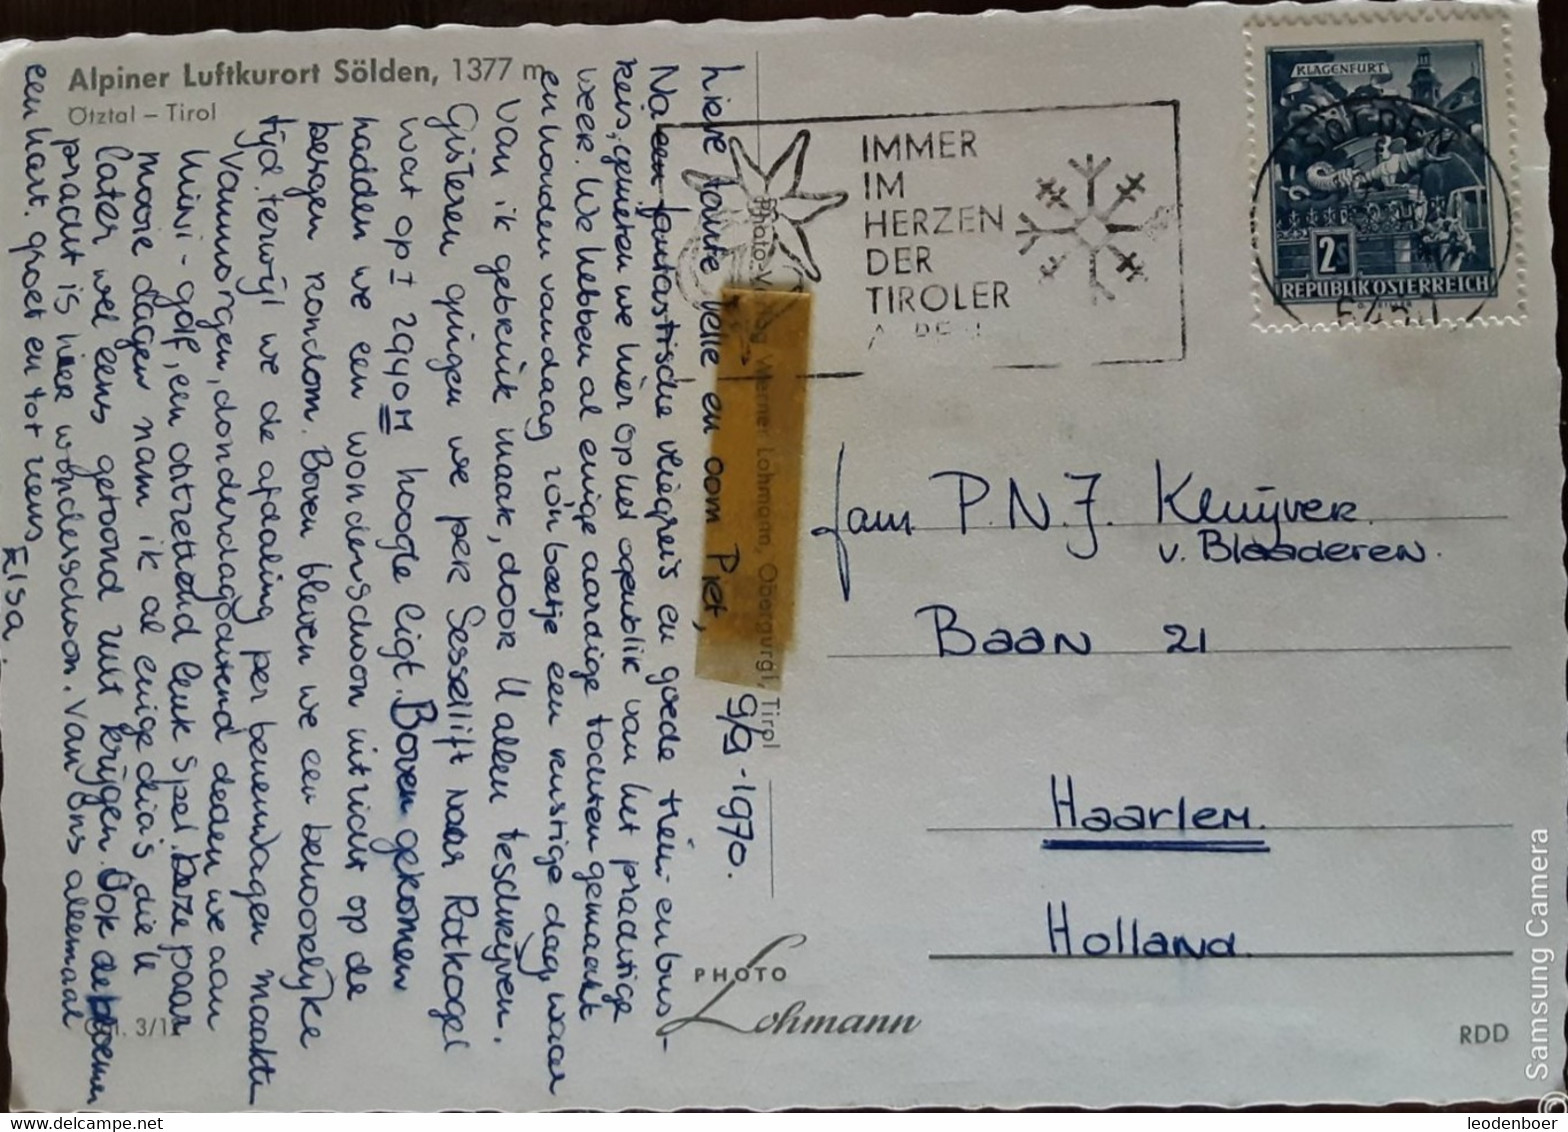 Alpiner Luftkurort Sölden, 1377 m
Ötztal – Tirol
Lieve tante Jelle en oom Piet, 9/9-1970.
Na een fantastische vliegreis en goede trein- en bus-
reis, genieten we hier op het ogenblik van het prachtige
weer. We hebben al enige aardige tochten gemaakt
en houden vandaag zo'n beetje een rustige dag, waar
van ik gebruik maak, door U allen te schrijven.
Gisteren gingen we per Sessellift naar Rotkogel
wat op ± 2940 M hoogte ligt. Boven gekomen
hadden we een wonderschoon uitzicht op de
bergen rondom. Boven bleven we een behoorlijke
tijd. terwijl we de afdaling per benenwagen maakte
Vanmorgen, donderdagochtend deden we aan
Mini-golf, een ontzettend leuk spel. Deze paar
mooie dagen nam ik al enige dia's die U
later wel eens getoond zult krijgen. Ook de bloemen
pracht is hier wonderschoon. Van ons allemaal
een hart. groet en tot ziens,
Elsa.
3/11
Photo Verlag Werner Lohmann, Obergurgl, Tirol
PHOTO
Lohmann
IMMER
IM
HERZEN
DER
TIROLER
KLAGENFURT
2S
REPUBLIK ÖSTERREICH
6450
Fam P.N.J. Kluijver.
v. Blaaderen.
Baan 21
Haarlem.
Holland.
RDD
Samsung Camera
©
leodenboer